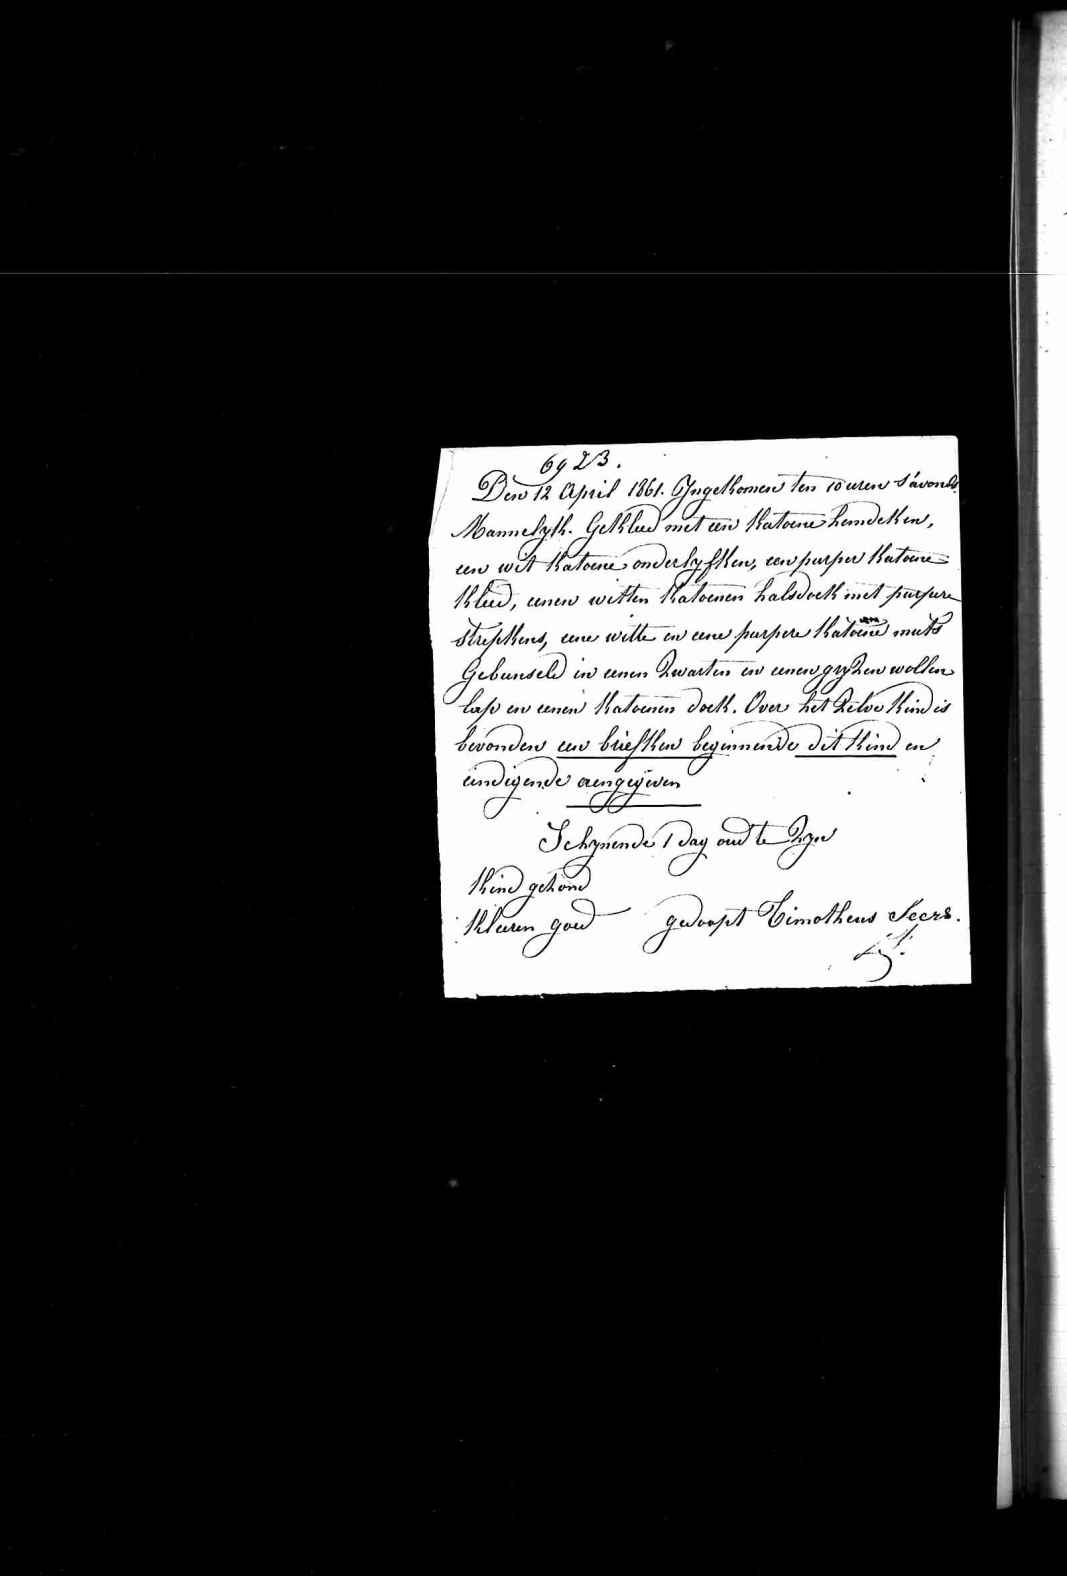 6923.
Den 12 April 1861. Yngekomen ten 10 uren s'avonds.
Mannelyk. Gekleed met een Katoene hemdeken,
een wit Katoene onderlyfken, een purper Katoene
Kleed, eenen witten Katoenen halsdoek met purpere
strepkens, eene witte en eene purpere Katoene muts
Gebunseld in eenen Zwarten en eenen gryzen wollen
lap en eenen Katoenen doek. Over het Zelve Kind is
bevonden een briefken beginnende dit Kind en
eindigende aengegeven
Schynende 1 dag oud te Zyn
Kind gezond
Kleeren goed gedoopt Timotheus Seers.